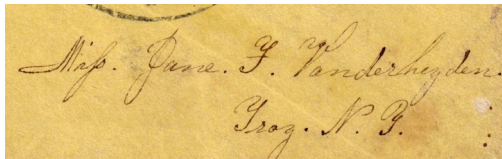 Miss. Jane. F. Vanderheyden.
Troy. N. Y.